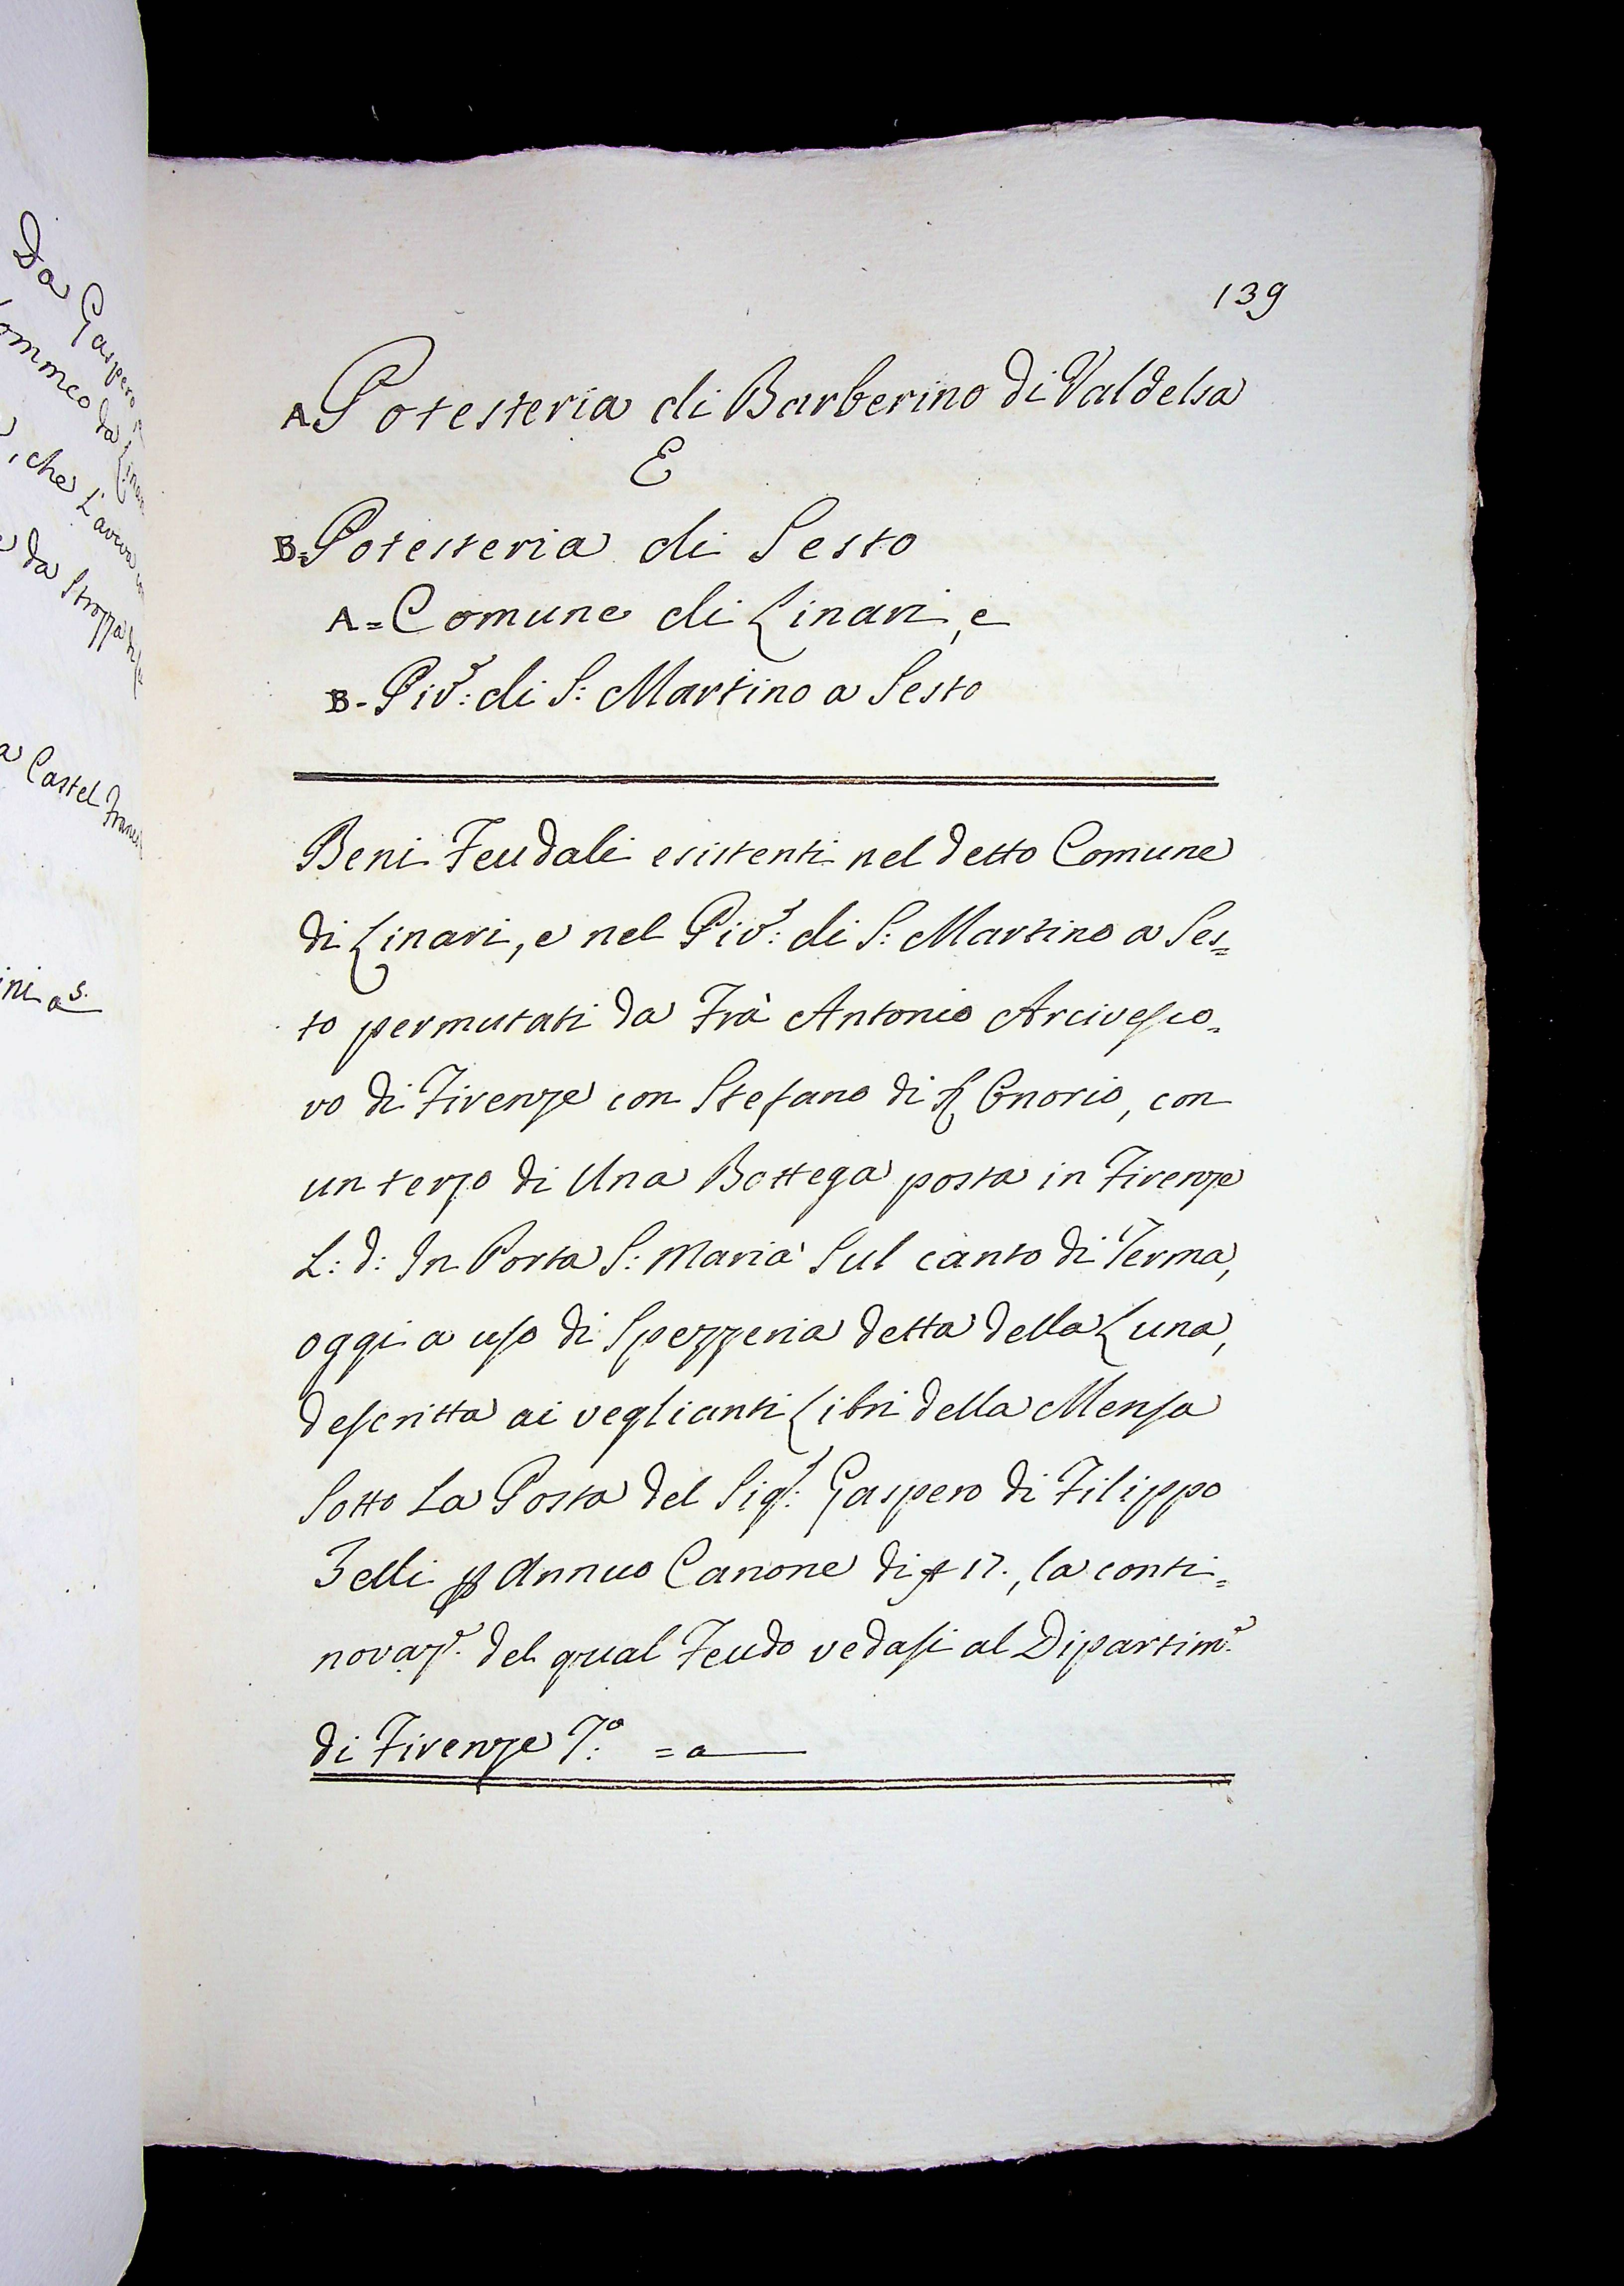 Da Gaspero
da
, che L'aveva
da Strozza
a Castel Franc
ini a s.
139
A. Potesteria di Barberino di Valdelsa
E
B= Potesteria di Sesto
A= Comune di Linari, e
B- Piv.e: di S: Martino a Sesto
Beni Feudali esistenti nel detto Comune
di Linari, e nel Piv.e: di S: Martino a Ses=
to permutati da Frà Antonio Arcivesco=
vo di Firenze con Stefano di Onorio, con
un terzo di Una Bottega posta in Firenze
L: d: In Porta S: Maria Sul canto di Terma,
oggi a uso di Spezzeria detta della Luna,
descritta ai veglianti Libri della Mensa
Sotto La Posta del Sig.r: Gaspero di Filippo
Zelli p Annuo Canone di 17., la conti=
novaz.e. del qual Feudo vedasi al Dipartim.o
di Firenze 7.o: = a